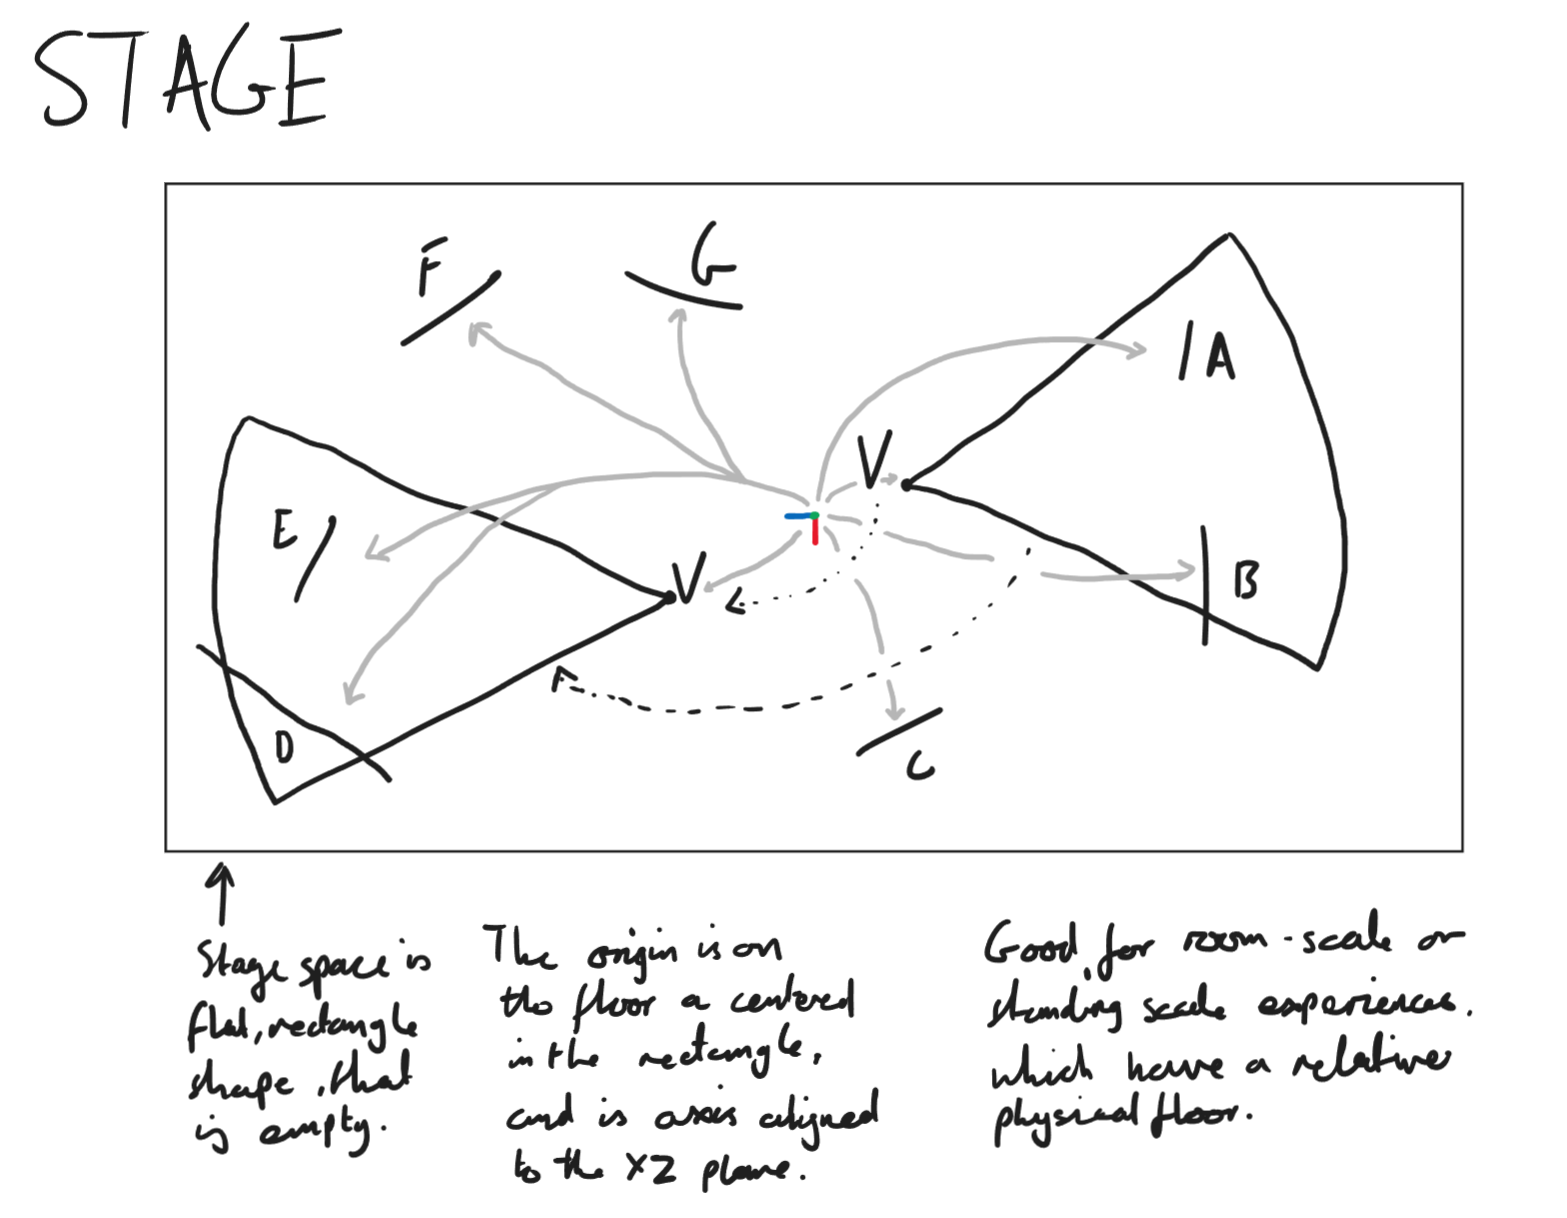 STAGE
F
G
A
V
E
V
B
D
C
Stage space is
flat, rectangle
shape, that
is empty.
The origin is on
the floor a centered
in the rectangle,
and is axis aligned
to the XZ plane.
Good for room-scale or
standing scale experiences.
which have a relative
physical floor.